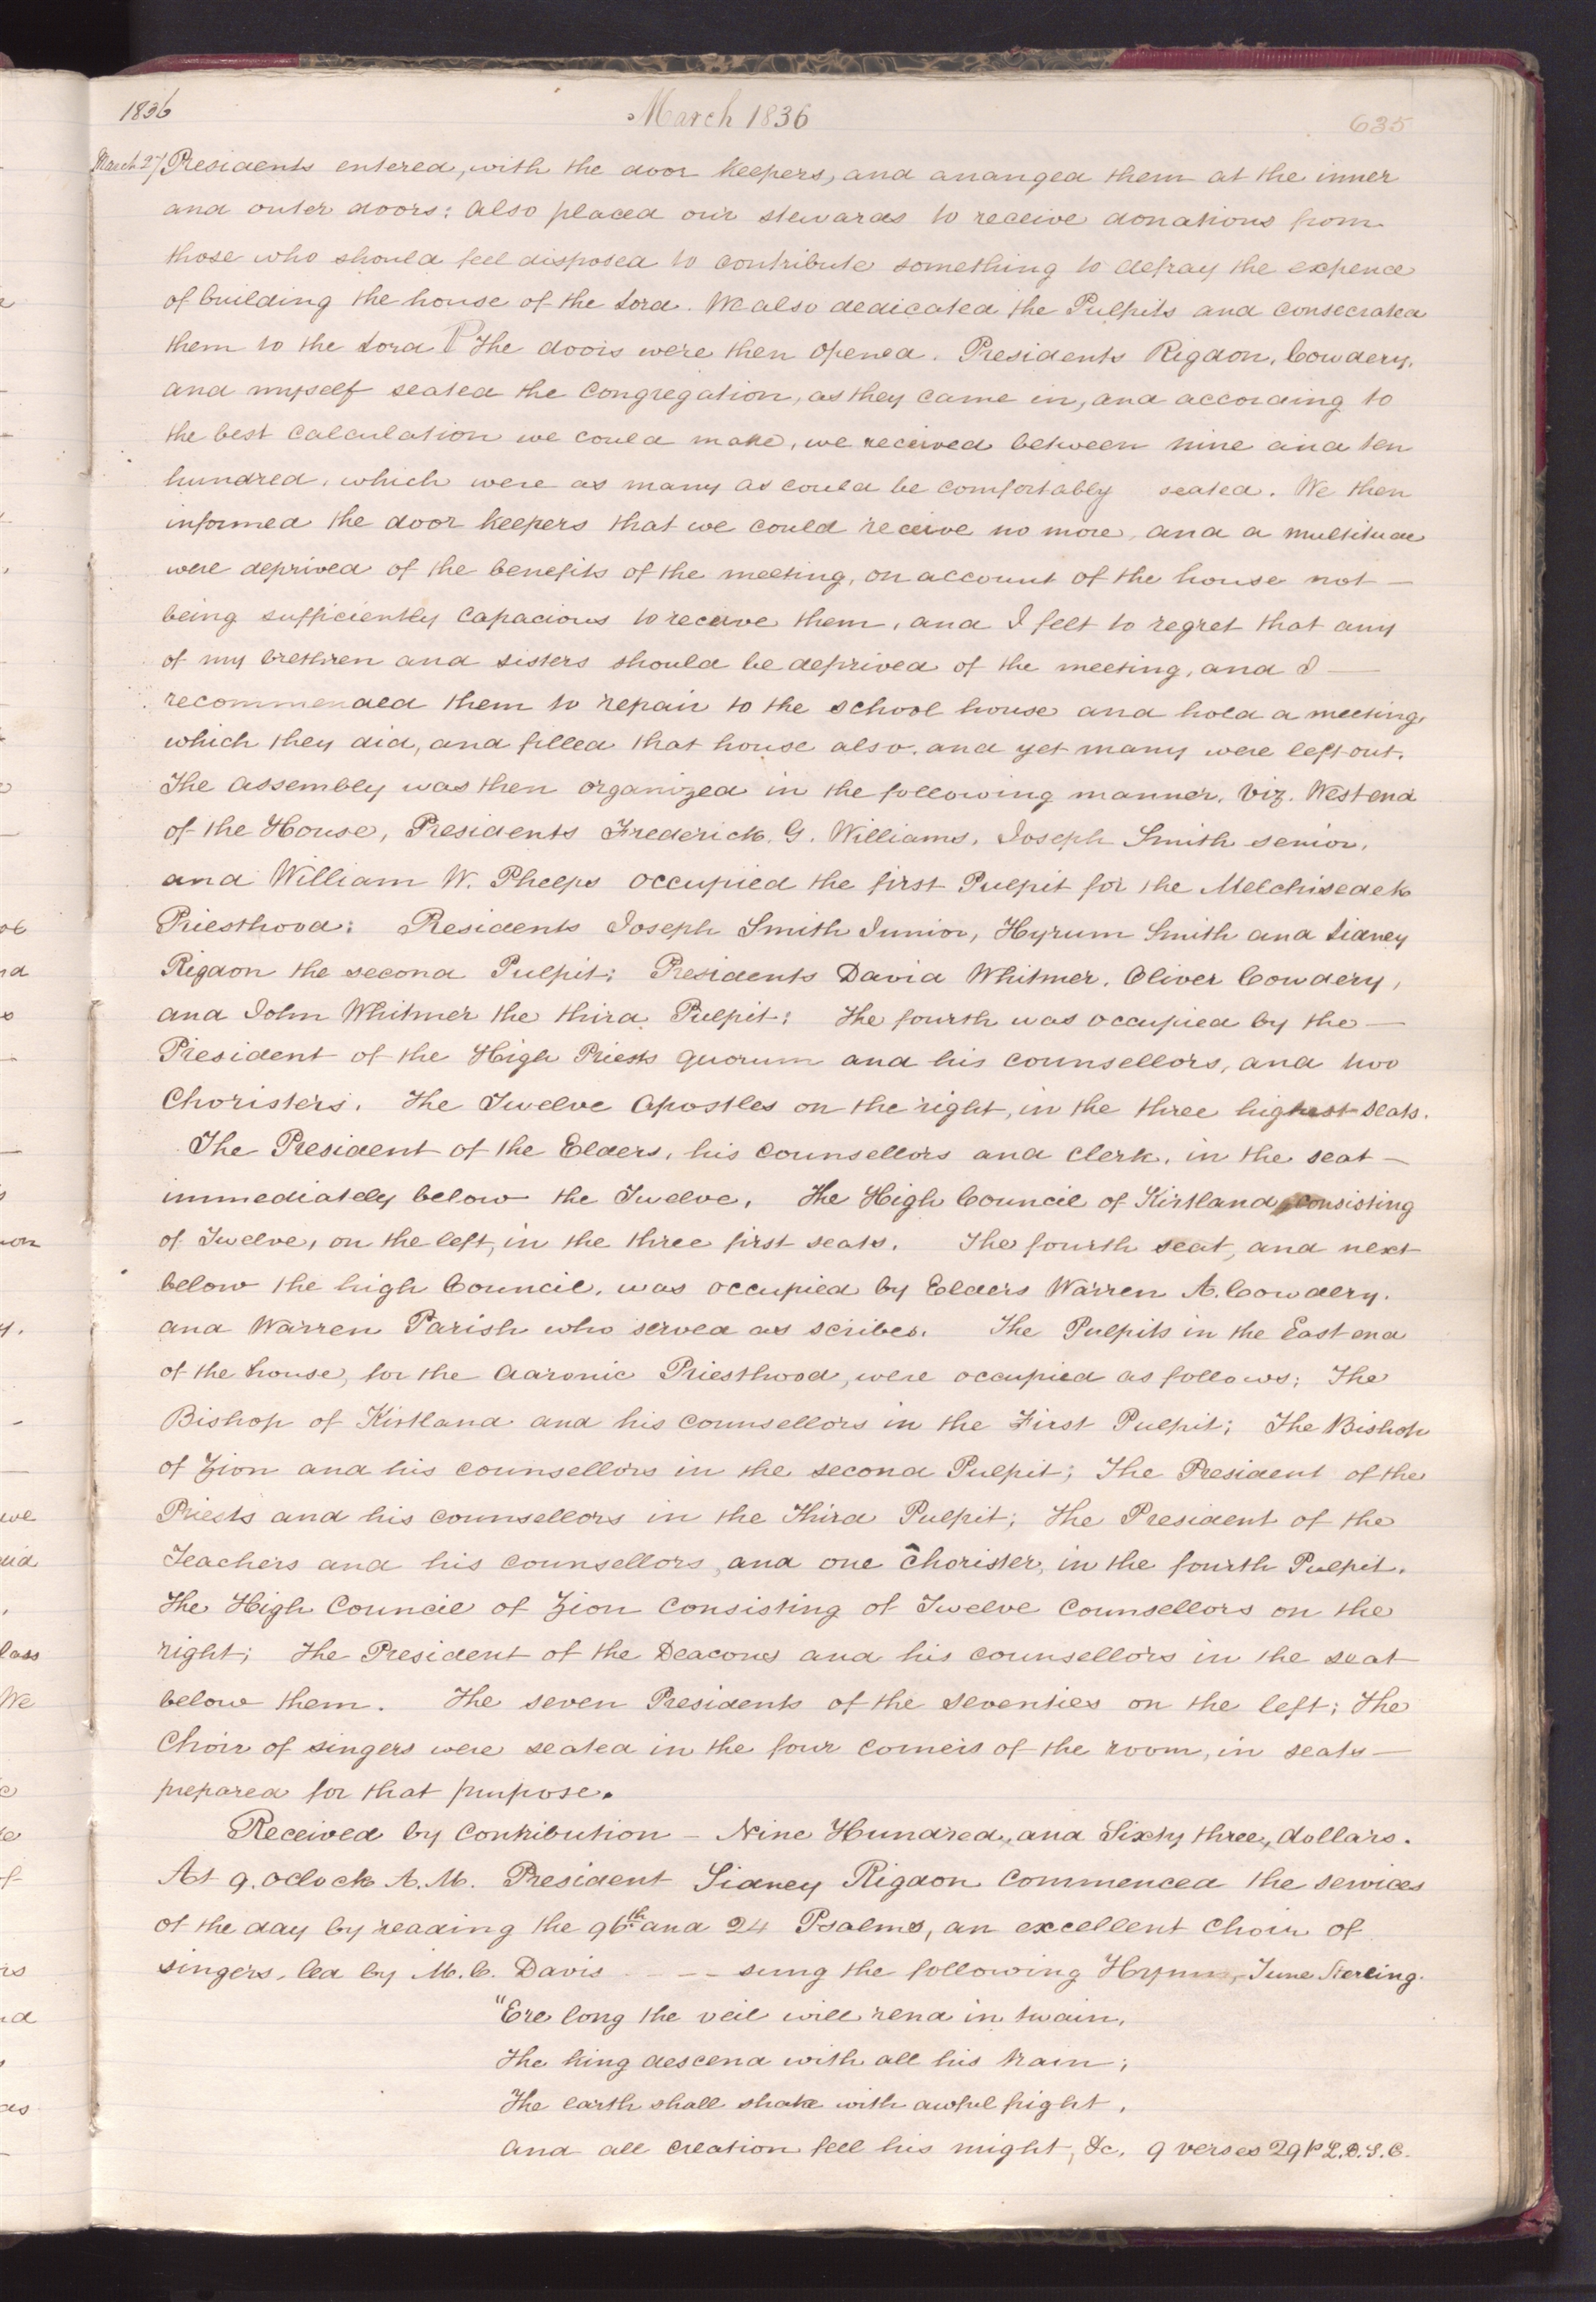 1836 March 1836 635
March 27 Presidents entered, with the door keepers, and arranged them at the inner
and outer doors: also placed our stewards to receive donations from
those who should feel disposed to contribute something to defray the expence
of building the house of the Lord. We also dedicated the Pulpits and consecrated
them to the Lord P The doors were then opened. Presidents Rigdon, Cowdery,
and myself seated the congregation, as they came in, and according to
the best calculation we could make, we received between nine and ten
hundred, which were as many as could be comfortably seated. We then
informed the door keepers that we could receive no more, and a multitude
were deprived of the benefits of the meeting, on account of the house not —
being sufficiently capacious to receive them, and I felt to regret that any
of my brethren and sisters should be deprived of the meeting, and I —
recommended them to repair to the school house and hold a meeting,
which they did, and filled that house also, and yet many were left out.
The assembly was then organized in the following manner, viz. West end
of the House, Presidents Frederick. G. Williams, Joseph Smith senior,
and William W. Phelps occupied the first Pulpit for the Melchisedek
Priesthood: Presidents Joseph Smith Junior, Hyrum Smith and Sidney
Rigdon the second Pulpit: Presidents David Whitmer, Oliver Cowdery,
and John Whitmer the third Pulpit: The fourth was occupied by the —
President of the High Priests quorum and his counsellors, and two
Choristers. The Twelve Apostles on the right, in the three highest seats.
The President of the Elders, his counsellors and clerk, in the seat —
immediately below the Twelve. The High Council of Kirtland, consisting
of Twelve, on the left, in the three first seats. The fourth seat, and next
below the high Council, was occupied by Elders Warren A. Cowdery.
and Warren Parish who served as scribes. The Pulpits in the East end
of the house, for the Aaronic Priesthood, were occupied as follows; The
Bishop of Kirtland and his counsellors in the First Pulpit; The Bishop
of Zion and his counsellors in the second Pulpit; The President of the
Priests and his counsellors in the Third Pulpit; The President of the
Teachers and his counsellors, and one Chorister, in the fourth Pulpit.
The High Council of Zion consisting of Twelve Counsellors on the
right; The President of the Deacons and his counsellors in the seat
below them. The seven Presidents of the seventies on the left; The
Choir of singers were seated in the four corners of the room, in seats —
prepared for that purpose.
Received by Contribution — Nine Hundred, and Sixty three, dollars.
At 9. oclock A.M. President Sidney Rigdon commenced the services
of the day by reading the 96th and 24 Psalms, an excellent Choir of
singers, led by M. C. Davis - - - sung the following Hymn, Tune Sterling.
"Ere long the veil will rend in twain,
The king descend with all his train;
The earth shall shake with awful fright,
And all creation feel his might, &c. 9 verses 29 p L.D.S.C.